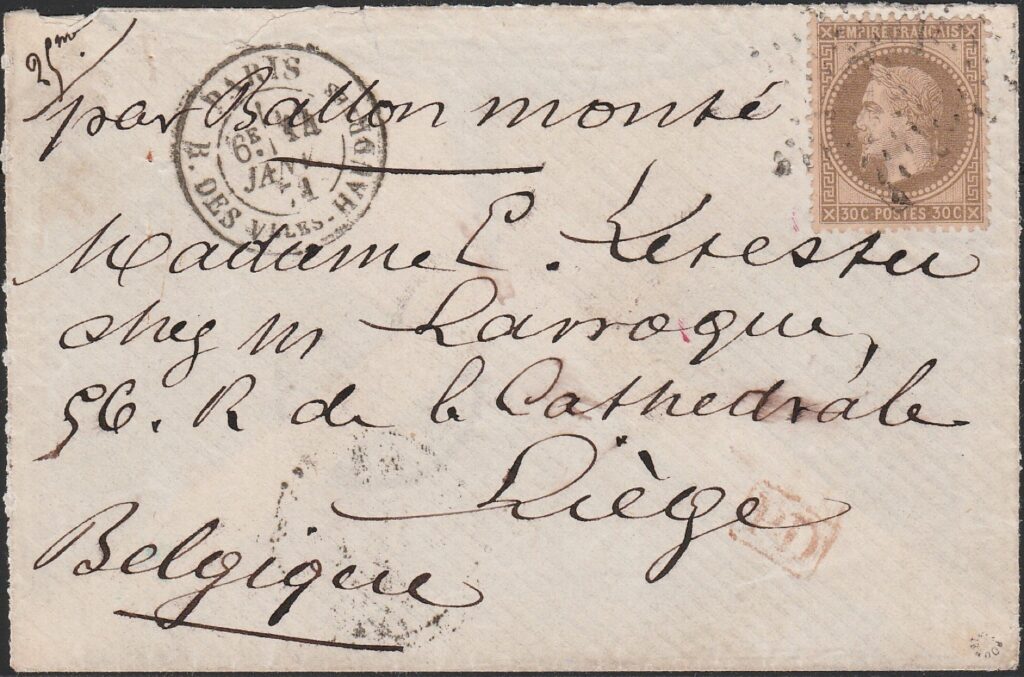 25me
par Ballon monté
PARIS
6E 14
JANV
71
R. DES VLES-HAUDR
EMPIRE FRANÇAIS
30C·POSTES·30C
Madame E.
chez M Larroque,
56. R de la Cathedrale
Liège
PD
Belgique